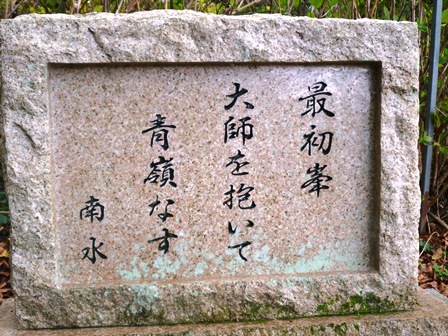 最初峯
大師を抱いて
青嶺なす
南水